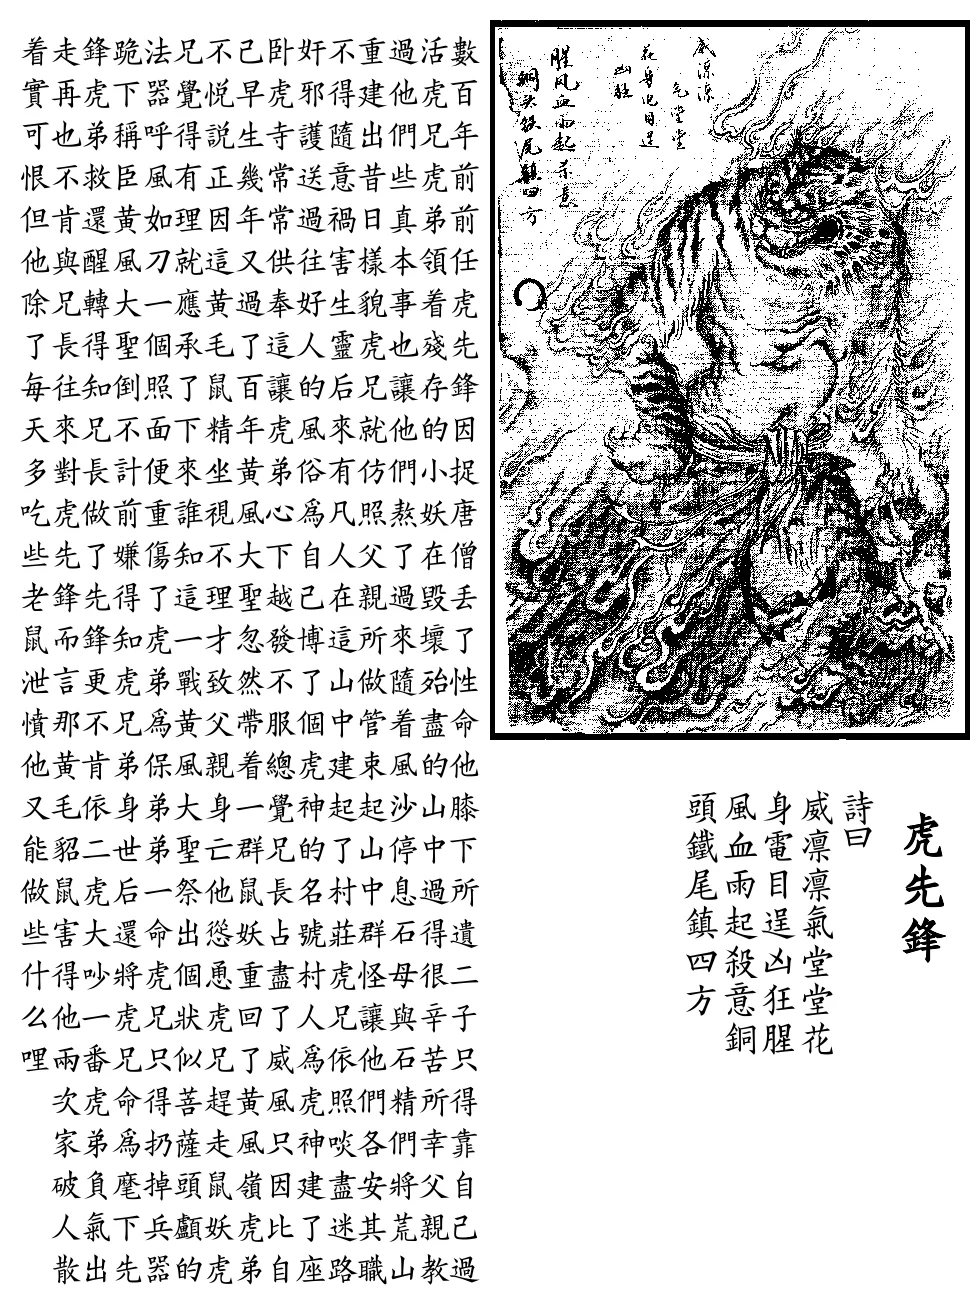 威凛凛
气堂堂
花身电目逞
凶狂
腥风血雨起杀意
铜头铁尾镇四方
虎先鋒
詩曰
威凛凛氣堂堂花
身電目逞凶狂腥
風血雨起殺意銅
頭鐵尾鎮四方
數百年前前任虎先鋒因捉唐僧丢了性命他膝下所遺二子只得靠自己過
活虎兄虎弟領着殘存的小妖在毁壞殆盡的山中過得很辛苦所幸父親教
過他們些真本事也讓他們熬了過來隨着風沙停息石母與石精們將荒山
重建出昔日樣貌虎兄就仿照父親所做管束起山中群怪讓他們各安其職
不得隨意禍害生靈后來有凡人在這山中建起了村莊虎兄依照啖盡迷路
奸邪護送過往好人的風俗爲自己博了個虎神的名號村人爲虎神建了座
卧虎寺常常供奉這讓虎弟心下越發不服總覺兄長占盡了威風只因比自
己早生幾年又過了百年黃風大聖忽然帶着一群鼠妖重回了黃風嶺虎弟
不悦説正因這黃毛鼠精坐視不理才致父親身亡他慫恿虎兄趕走鼠妖虎
兄覺得有理就應承了下來誰知這一戰黃風大聖祭出個狀似菩薩頭顱的
法器呼風如刀一個照面便重傷了虎弟爲保弟弟一命虎兄只得扔掉兵器
跪下稱臣黃風大聖倒不計前嫌得知虎兄弟身世后還將虎兄命爲麾下先
鋒虎弟救還醒轉得知兄長做了先鋒更不肯依二虎大吵一番虎弟負氣出
走再也不肯與兄長往來對虎先鋒而言那黃毛貂鼠害得他兩次家破人散
着實可恨但他除了每天多吃些老鼠泄憤他又能做些什么哩